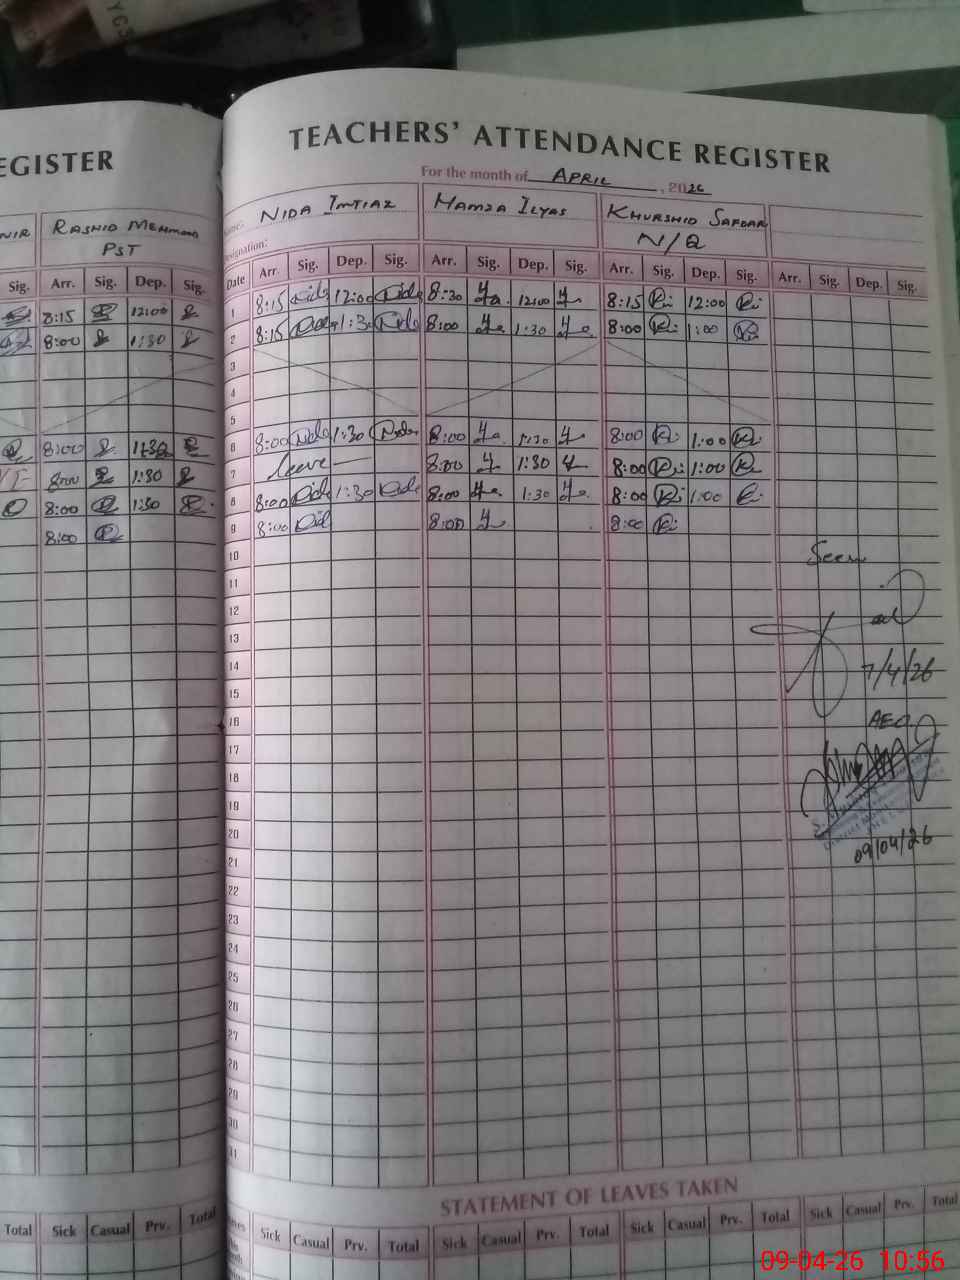 YC3
EGISTER
NIR RASHID MEHMOOD
PST
Sig. Arr. Sig. Dep. Sig.
8:15 12:00
8:00 1:30
8:00 1:30
8:00 1:30
8:00 1:30
8:00
Total Sick Casual Prv. Total
TEACHERS' ATTENDANCE REGISTER
For the month of APRIL, 2026
Name: NIDA IMTIAZ HAMZA ILYAS KHURSHID SAFDAR
Designation: N/Q
Date Arr. Sig. Dep. Sig. Arr. Sig. Dep. Sig. Arr. Sig. Dep. Sig. Arr. Sig. Dep. Sig.
1 8:15 Nida 12:00 Nida 8:30 12:00 8:15 12:00
2 8:15 Nida 1:30 Nida 8:00 1:30 8:00 1:00
3
4
5
6 8:00 Nida 1:30 Nida 8:00 1:30 8:00 1:00
7 Leave 8:00 1:30 8:00 1:00
8 8:00 Nida 1:30 Nida 8:00 1:30 8:00 1:00
9 8:00 Nid 8:00 8:00
10
Seen
11
12
13
14
7/4/26
15
16
AEO
17
18
19
20
09/04/26
21
22
23
24
25
26
27
28
29
30
31
STATEMENT OF LEAVES TAKEN
Sick Casual Prv. Total Sick Casual Prv. Total Sick Casual Prv. Total Sick Casual Prv. Total
09-04-26 10:56